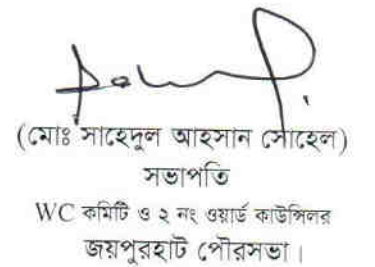 (মোঃ সাহেদুল আহসান সোহেল)
সভাপতি
WC কমিটি ও ২ নং ওয়ার্ড কাউন্সিলর
জয়পুরহাট পৌরসভা।